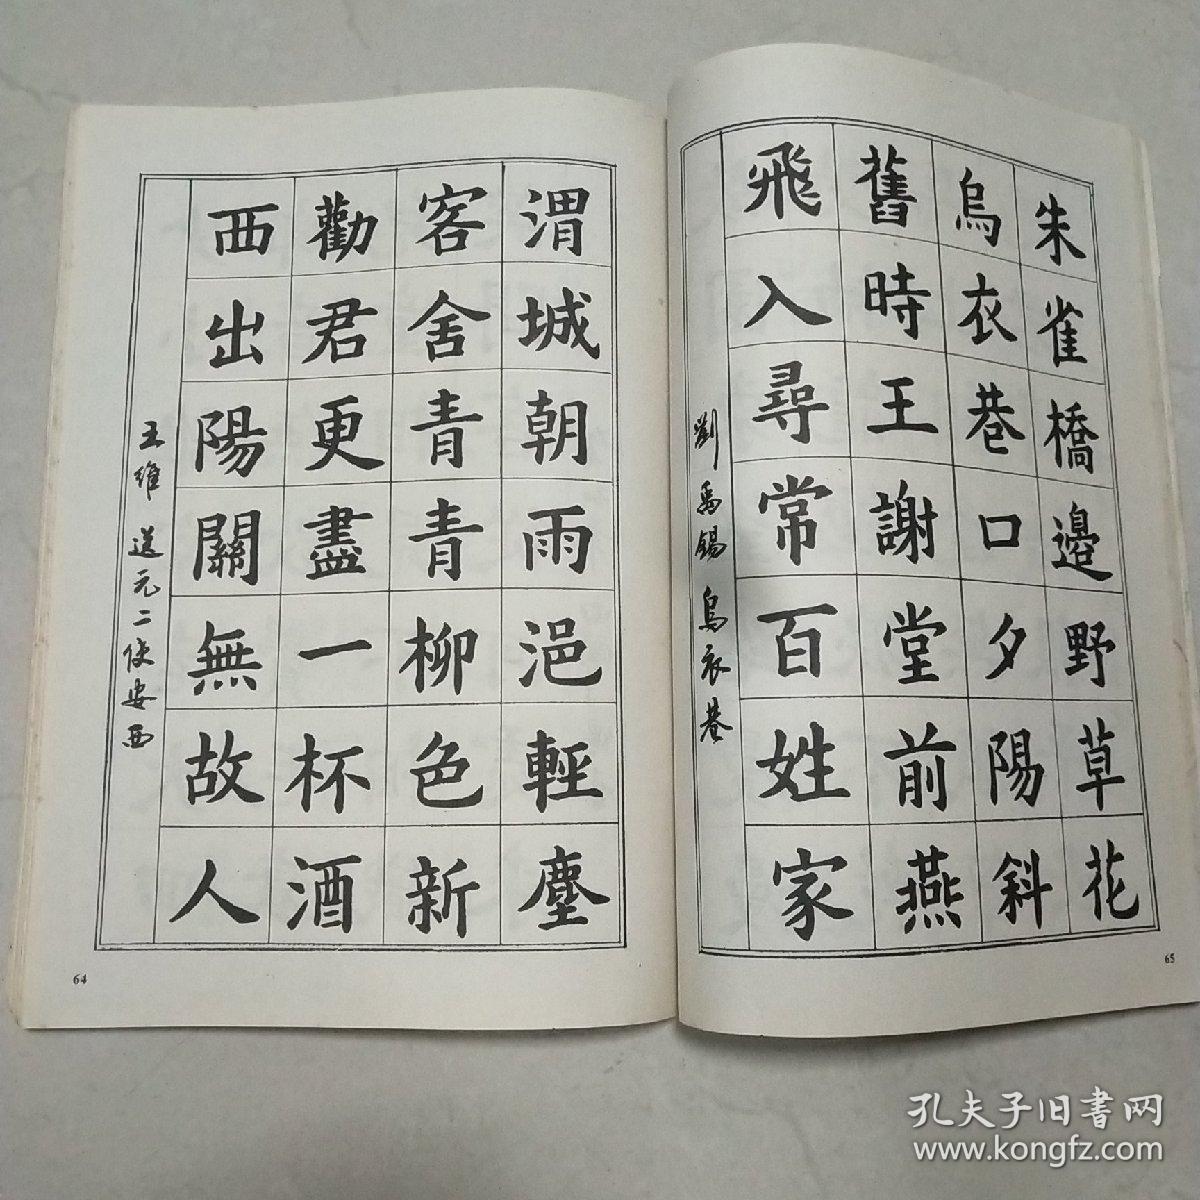 朱雀橋邊野草花
烏衣巷口夕陽斜
舊時王謝堂前燕
飛入尋常百姓家
劉禹錫 烏衣巷
65
渭城朝雨浥輕塵
客舍青青柳色新
勸君更盡一杯酒
西出陽關無故人
王維 送元二使安西
64
孔夫子旧书网
www.kongfz.com